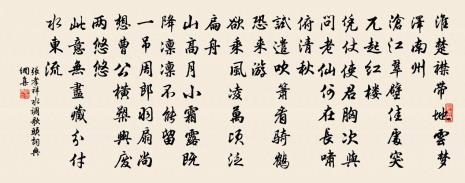 淮楚襟帶地雲夢
澤南州
滄江翠壁佳處突
兀起紅樓
凭仗使君胸次與
問老仙何在長嘯
俯清秋
試遣吹簫看騎鶴
恐來游
欲乘風凌萬頃泛
扁舟
山高月小霜露既
降凜凜不能留
一吊周郎羽扇尚
想曹公橫槊興廢
兩悠悠
此意無盡藏分付
水東流
張孝祥水調歌頭詞